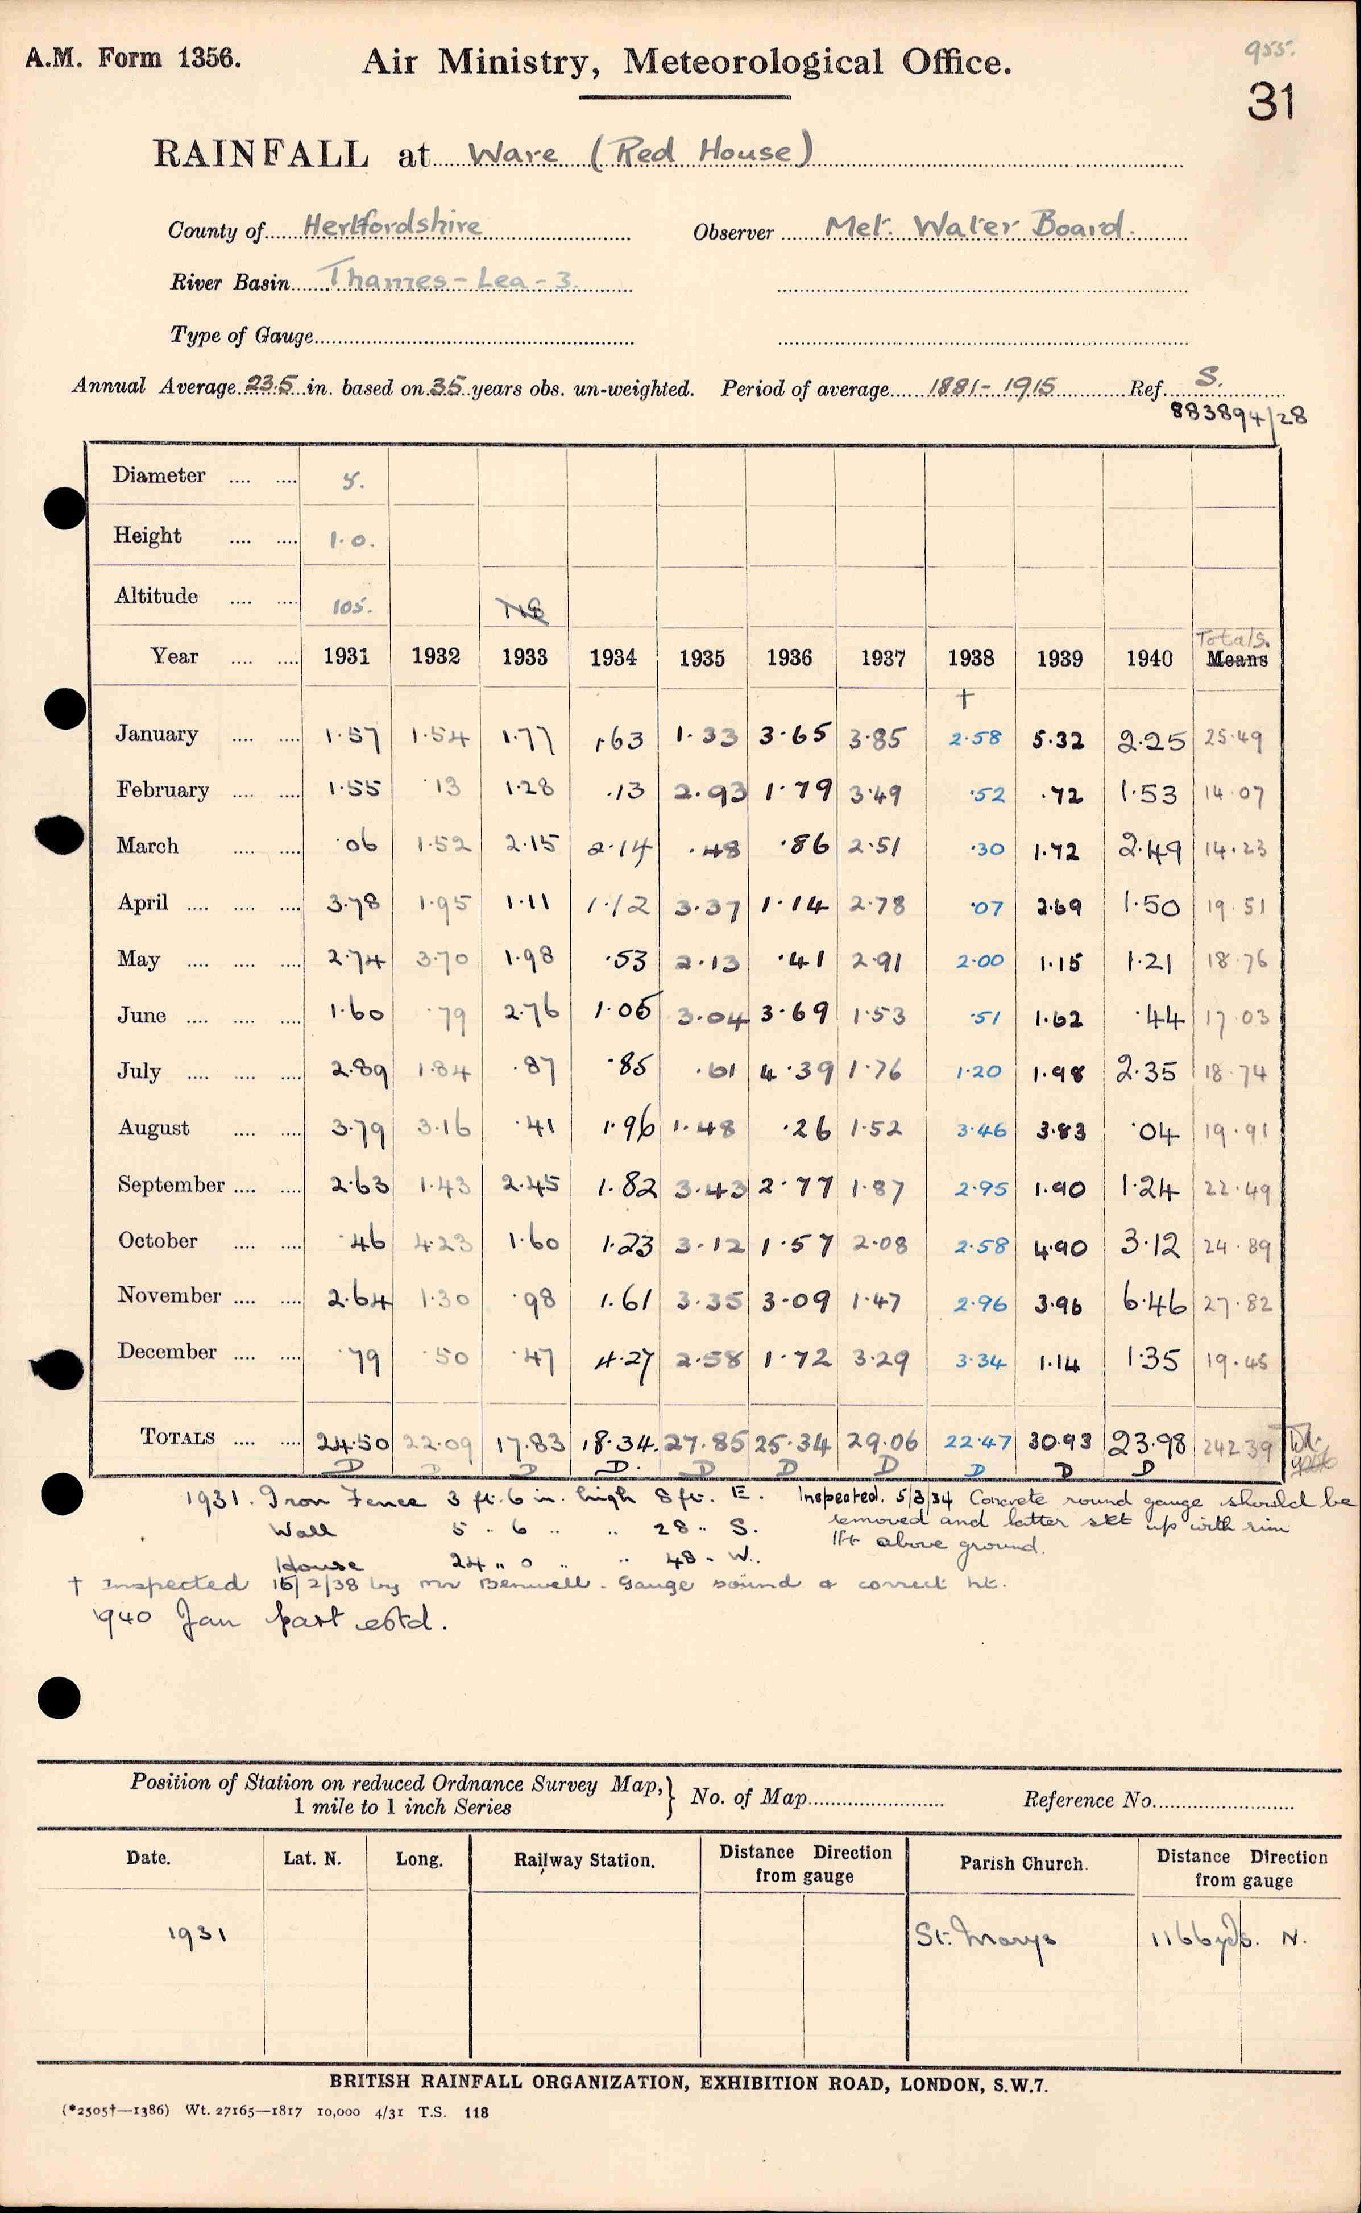 A.M. Form 1356. Air Ministry, Meteorological Office. 955.
31
RAINFALL at Ware (Red House)
County of Hertfordshire Observer Met. Water Board.
River Basin Thames - Lea - 3.
Type of Gauge
Annual Average 23.5 in. based on 35 years obs. un-weighted. Period of average 1881-1915 Ref. S.
883894/28
Diameter 5.
Height 1.0.
Altitude 105.
Totals.
Year 1931 1932 1933 1934 1935 1936 1937 1938 1939 1940 Means
†
January 1.57 1.54 1.77 1.63 1.33 3.65 3.85 2.58 5.32 2.25 25.49
February 1.55 .13 1.28 .13 2.93 1.79 3.49 .52 .72 1.53 14.07
March .06 1.52 2.15 2.14 .48 .86 2.51 .30 1.72 2.49 14.23
April 3.78 1.95 1.11 1.12 3.37 1.14 2.78 .07 2.69 1.50 19.51
May 2.74 3.70 1.98 .53 2.13 .41 2.91 2.00 1.15 1.21 18.76
June 1.60 .79 2.76 1.05 3.04 3.69 1.53 .51 1.62 .44 17.03
July 2.89 1.84 .87 .85 .61 4.39 1.76 1.20 1.98 2.35 18.74
August 3.79 3.16 .41 1.96 1.48 .26 1.52 3.46 3.83 .04 19.91
September 2.63 1.43 2.45 1.82 3.43 2.77 1.87 2.95 1.90 1.24 22.49
October .46 4.23 1.60 1.23 3.12 1.57 2.08 2.58 4.90 3.12 24.89
November 2.64 1.30 .98 1.61 3.35 3.09 1.47 2.96 3.96 6.46 27.82
December .79 .50 .47 4.27 2.58 1.72 3.29 3.34 1.14 1.35 19.45
TOTALS 24.50 22.09 17.83 18.34 27.85 25.34 29.06 22.47 30.93 23.98 242.39
D D D D. D D D D D D
1931. Iron Fence 3 ft. 6 in. high 8 ft. E. Inspected. 5/3/34 Concrete round gauge should be
Wall 5 " 6 " " 28 " S. removed and latter set up with rim
1ft above ground.
House 24 " 0 " " 48 " W.
† Inspected 15/2/38 by Mr Bennell. Gauge sound & correct ht.
1940 Jan part estd.
Position of Station on reduced Ordnance Survey Map, } No. of Map Reference No.
1 mile to 1 inch Series
Date. Lat. N. Long. Railway Station. Distance Direction from gauge Parish Church. Distance Direction from gauge
1931 St. Marys 1166yds. N.
BRITISH RAINFALL ORGANIZATION, EXHIBITION ROAD, LONDON, S.W.7.
(*2505†—1386) Wt. 27165—1817 10,000 4/31 T.S. 118